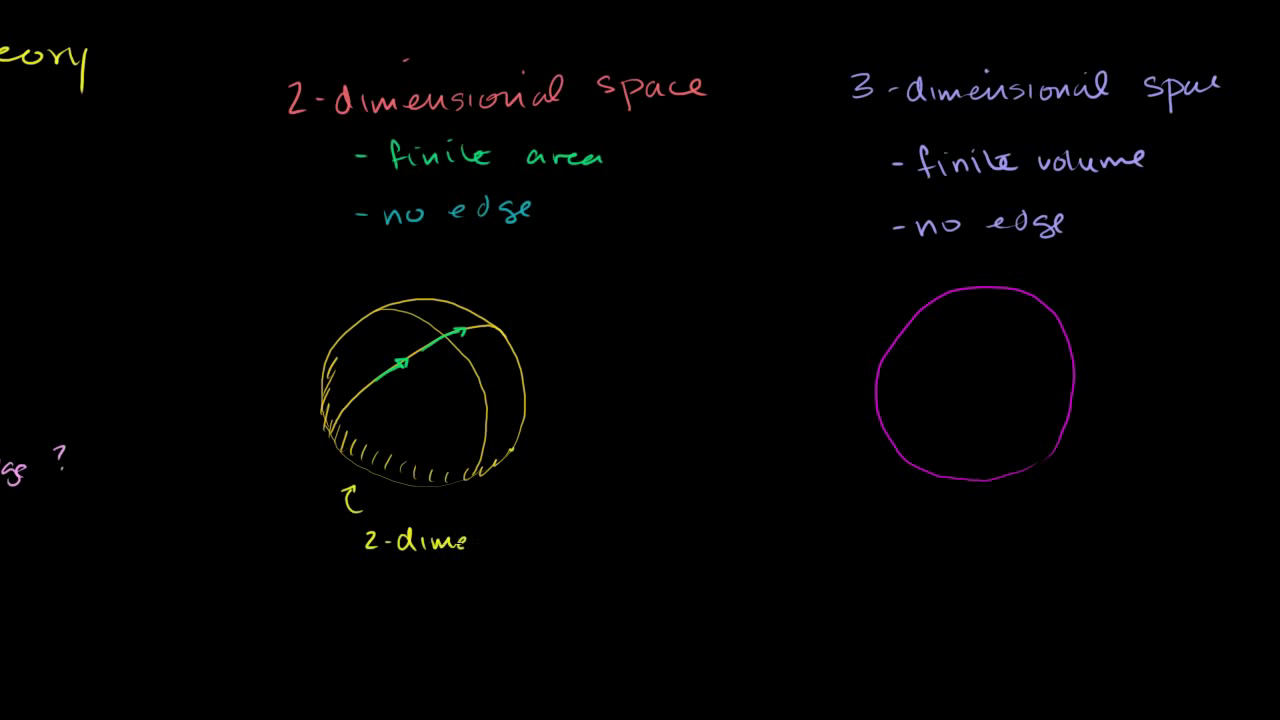 eory
2-dimensional space
- finite area
- no edge
3-dimensional spac
- finite volume
- no edge
ge ?
2-dime